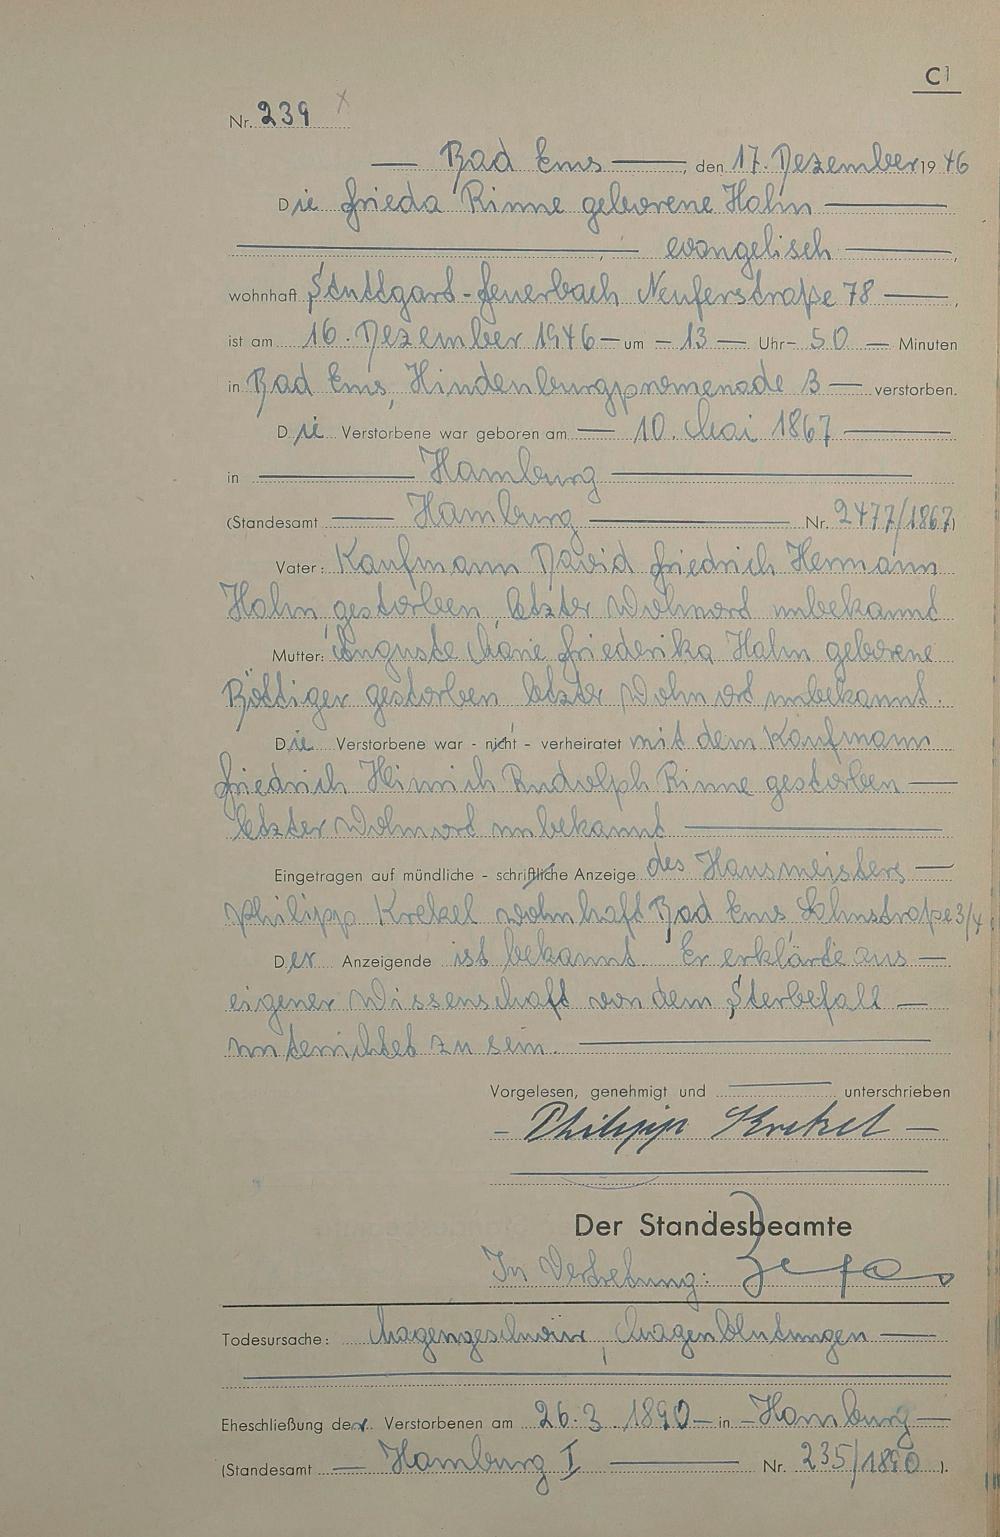 C1
Nr. 239
Bad Ems, den 17. Dezember 1946
Die Frieda Rinne geborene Hahn
, evangelisch ,
wohnhaft Stuttgart-Feuerbach Neuferstraße 78 ,
ist am 16. Dezember 1946 um 13 Uhr 50 Minuten
in Bad Ems, Hindenburgpromenade 3 verstorben.
Die Verstorbene war geboren am 10. Mai 1867
in Hamburg
(Standesamt Hamburg Nr. 2477/1867)
Vater: Kaufmann David Friedrich Hermann
Hahn, gestorben, letzter Wohnord unbekannt
Mutter: Auguste Marie Friederika Hahn geborene
Böttiger gestorben letzter Wohnord unbekannt.
Die Verstorbene war - nicht - verheiratet mit dem Kaufmann
Friedrich Heinrich Rudolph Rinne gestorben
letzter Wohnord unbekannt
Eingetragen auf mündliche - schriftliche Anzeige des Hausmeisters
Philipp Krekel wohnhaft Bad Ems, Lahnstraße 3/4
Der Anzeigende ist bekannt. Er erklärte aus
eigener Wissenschaft von dem Sterbefall
unterrichtet zu sein.
Vorgelesen, genehmigt und unterschrieben
Philipp Krekel
Der Standesbeamte
In Vertretung:
Todesursache: Magengeschwür, Magenblutungen
Eheschließung der Verstorbenen am 26.3.1890 in Hamburg
(Standesamt Hamburg I Nr. 235/1890).